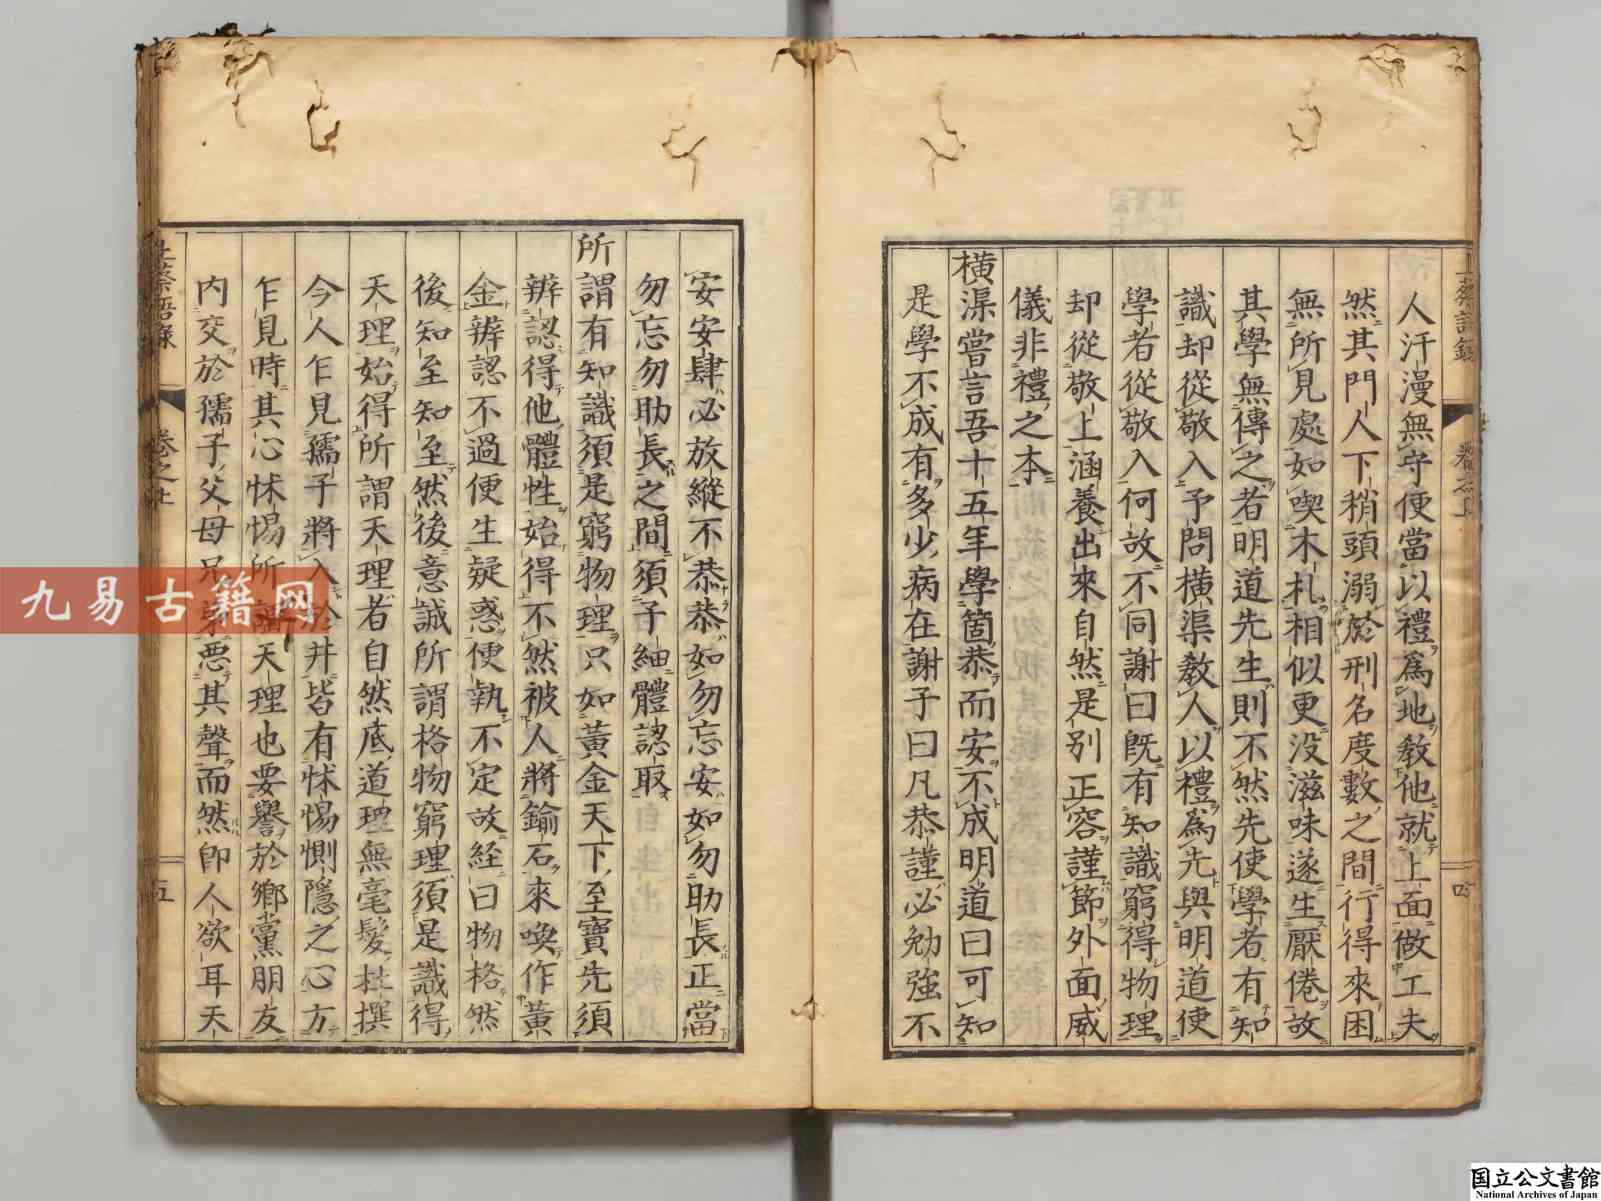 上蔡語錄
卷之上
四
人汗漫無守便當以禮爲地教他就上面做工夫
然其門人下稍頭溺於刑名度數之間行得來困
無所見處如喫木札相似更没滋味遂生厭倦故
其學無傳之者明道先生則不然先使學者有知
識却從敬入予問橫渠教人以禮為先與明道使
學者從敬入何故不同謝曰旣有知識窮得物理
却從敬上涵養出來自然是别正容謹節外面威
儀非禮之本
橫渠嘗言吾十五年學箇恭而安不成明道曰可知
是學不成有多少病在謝子曰凡恭謹必勉強不
安安肆必放縱不恭恭如勿忘安如勿助長正當
勿忘勿助長之間須子細體認取
所謂有知識須是窮物理只如黃金天下至寶先須
辨認得他體性始得不然被人將鍮石來喚作黃
金辨認不過便生疑惑便執不定故経曰物格然
後知至知至然後意誠所謂格物窮理須是識得
天理始得所謂天理者自然底道理無毫髮杜撰
今人乍見孺子將入於井皆有怵惕惻隱之心方
乍見時其心怵惕所謂天理也要譽於鄉黨朋友
內交於孺子父母兄弟惡其聲而然卽人欲耳天
上蔡語錄
卷之上
五
九易古籍网
国立公文書館
National Archives of Japan